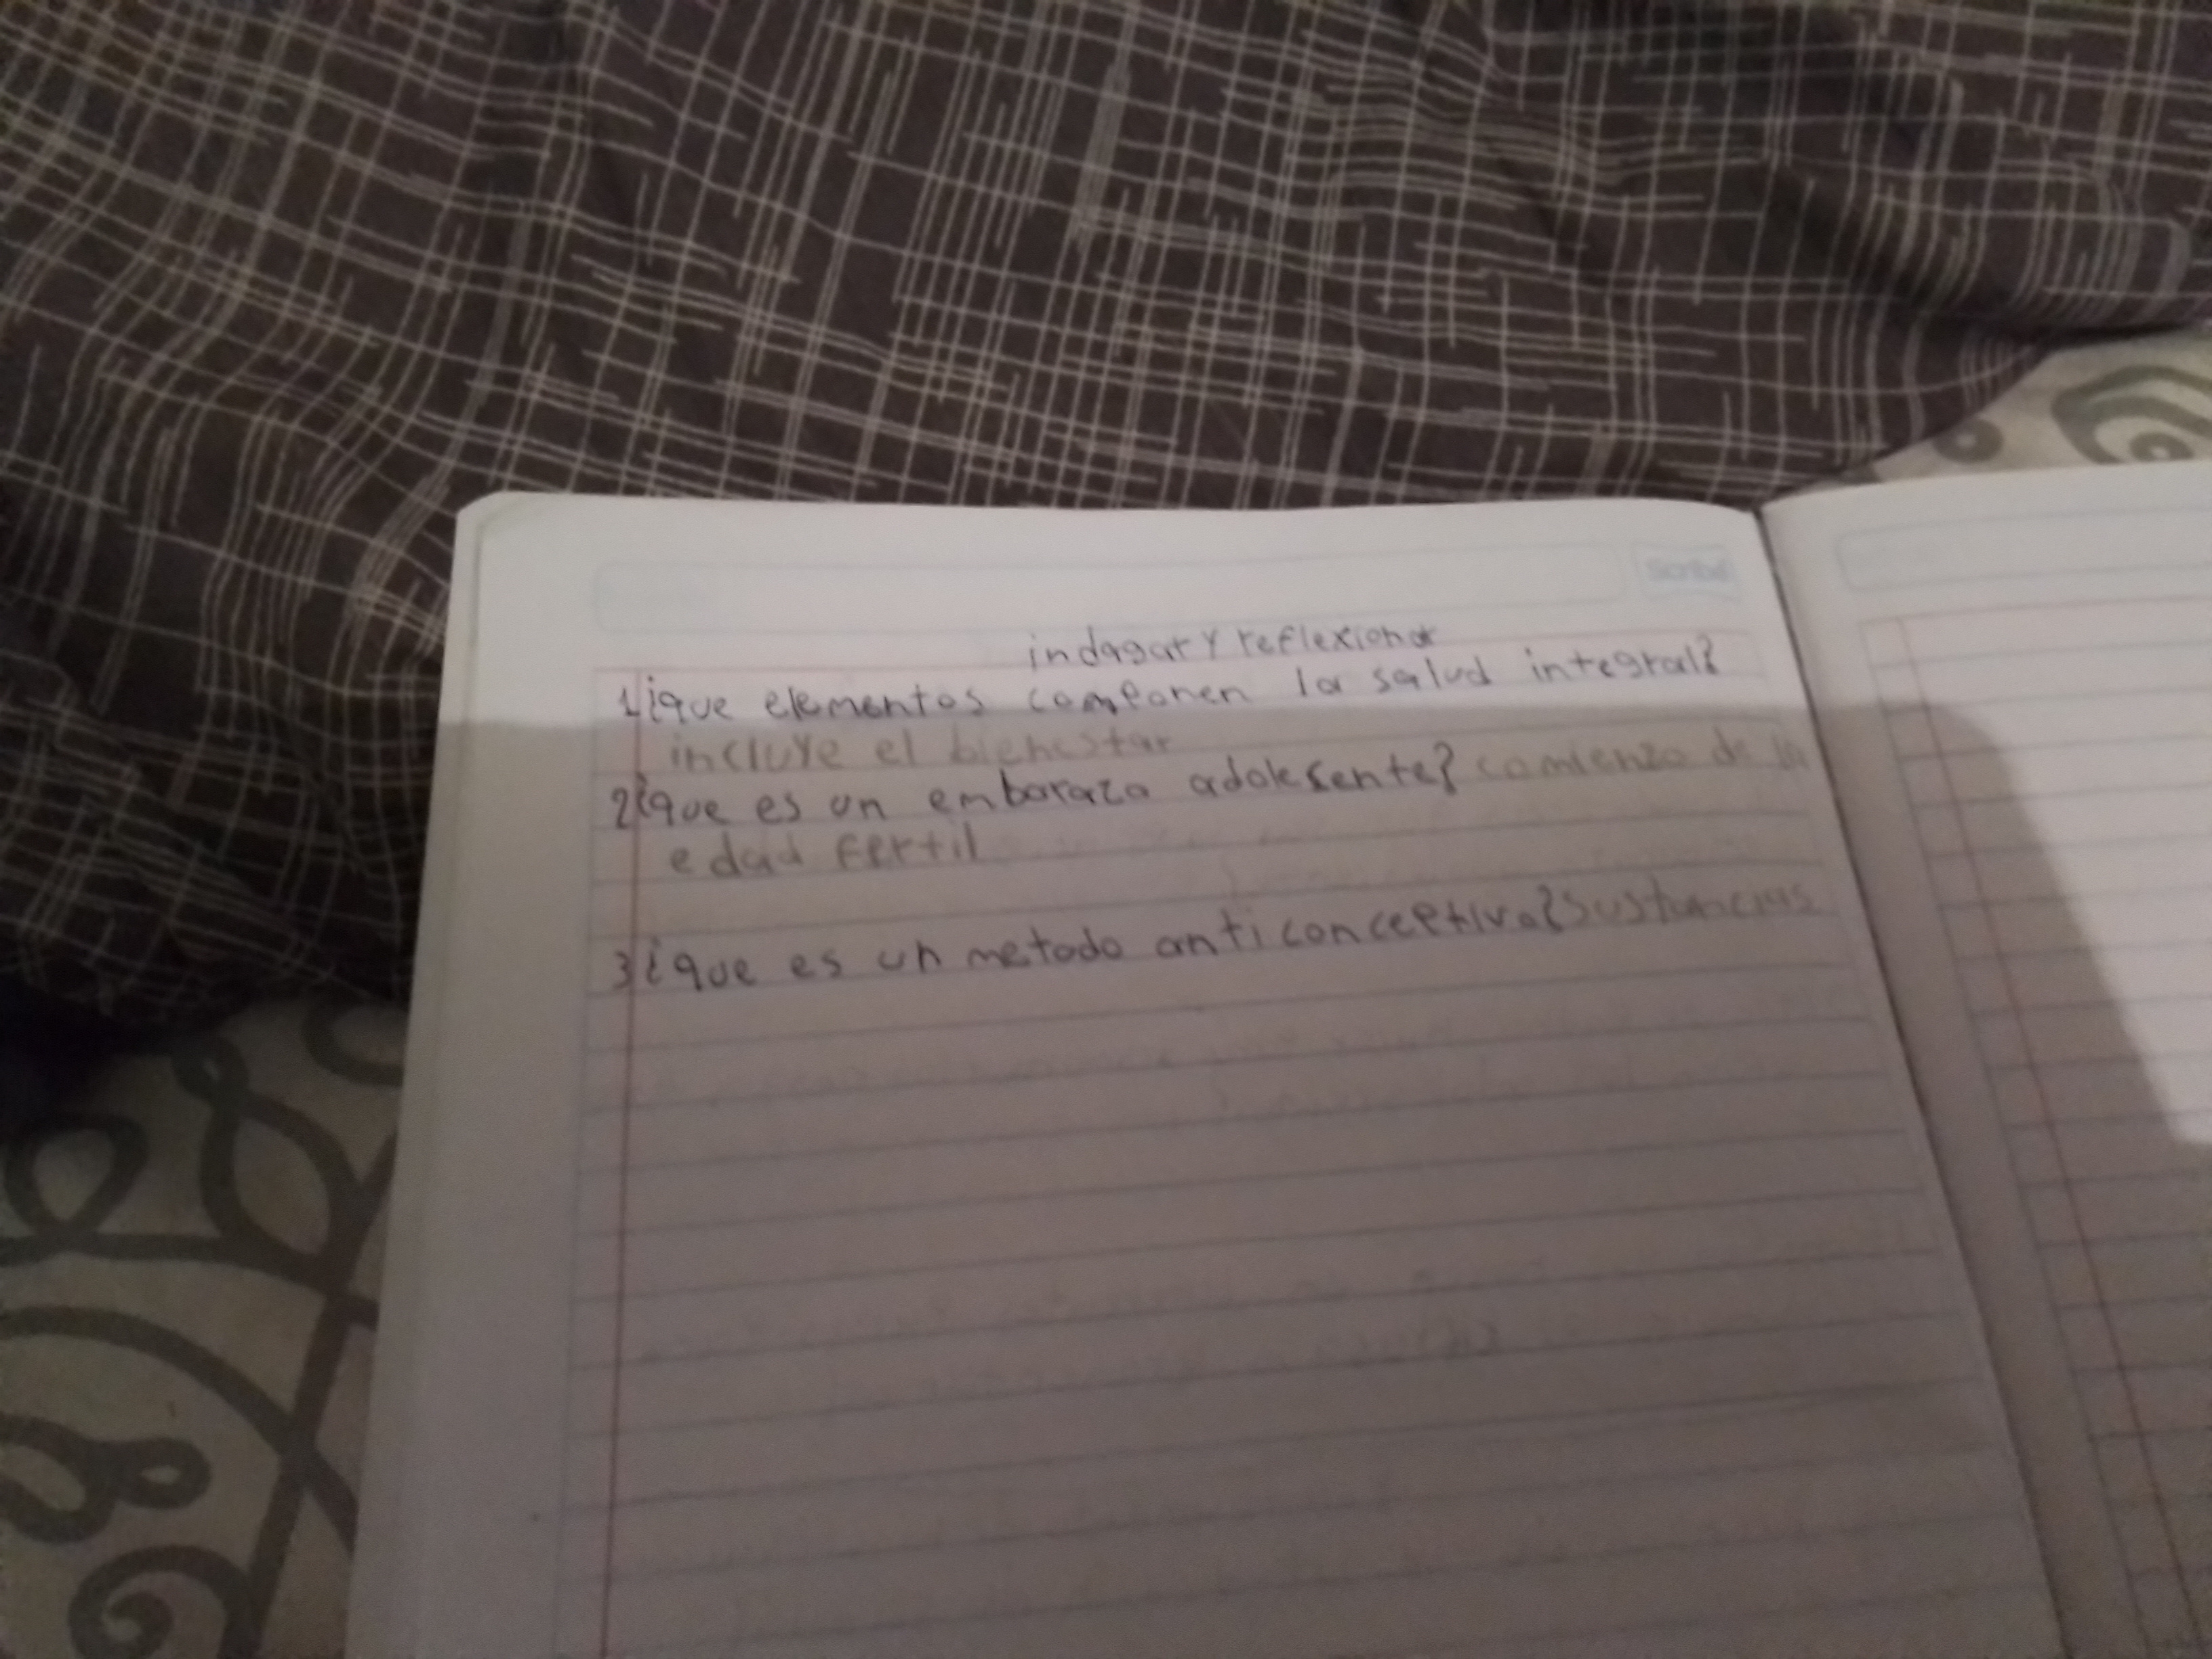 Scribe
indagar y reflexionar
1 ¿que elementos componen la salud integral?
incluye el bienestar
2 ¿que es un embarazo adolesente? comienzo de la
edad fertil
3 ¿que es un metodo anticonceptivo? sustancias